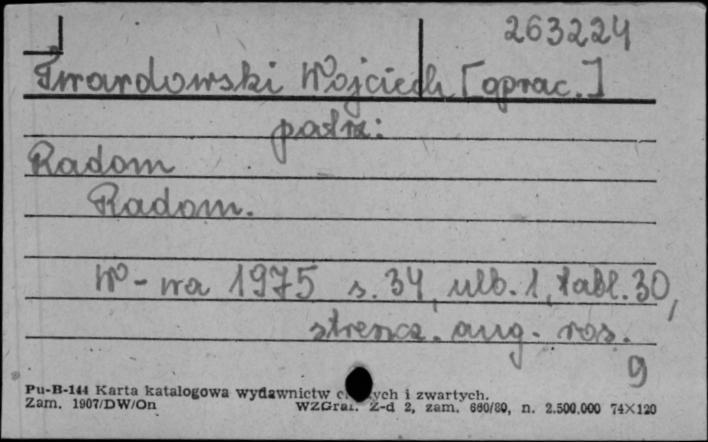 263224
Twardowski Wojciech [oprac.]
patrz:
Radom
Radom.
W-wa 1975 s. 34, nlb. 1, tabl. 30,
streszcz. ang. ros.
9
Pu-B-144 Karta katalogowa wydawnictw i zwartych.
Zam. 1907/DW/On WZGraf. Z-d 2, zam. 660/80, n. 2.500.000 74×120